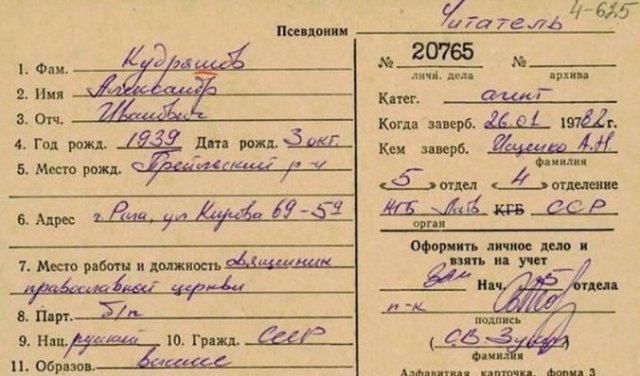 4-625
Псевдоним Читатель
1. Фам. Кудряшов
2. Имя Александр
3. Отч. Иванович
4. Год рожд. 1939 Дата рожд. 3 окт.
5. Место рожд. Прейльский р-н
6. Адрес г. Рига, ул Кирова 69-59
7. Место работы и должность священник
православной церкви
8. Парт. б/п
9. Нац. русский 10. Гражд. СССР
11. Образов. высшее
№ 20765 №
личн. дела архива
Катег. агент
Когда заверб. 26.01 19782 г.
Кем заверб. Ищенко А.Н.
фамилия
«5» отдел «4» отделение
КГБ Латв КГБ ССР
орган
Оформить личное дело и
взять на учет
Зам Нач. 5 отдела
п-к
подпись
(С.В
фамилия
Алфавитная карточка, форма 3